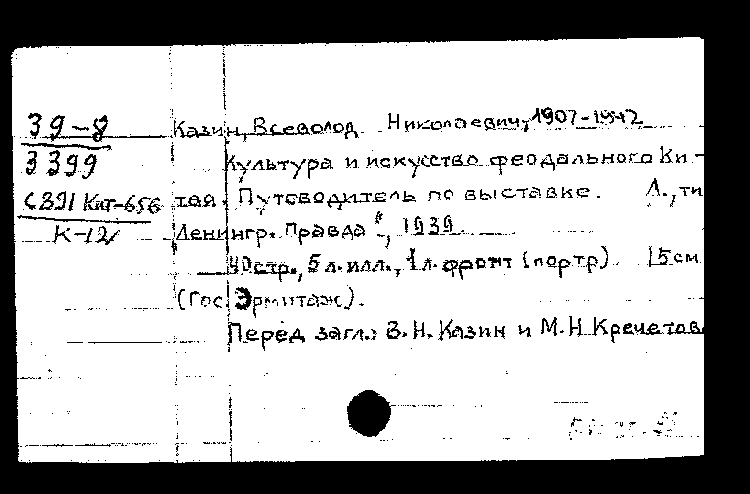 39-8
3399
С391 Кит-656
К-12/
Казин, Всеволод Николаевич, 1907-1942
Культура и искусство феодального Ки-
тая. Путеводитель по выставке. Л., ти
Ленингр. Правда", 1939
40 стр., 5 л. илл., 1 л. фронт (портр). 15 см
(Гос. Эрмитаж).
Перед загл.: В. Н. Казин и М. Н Кречетова